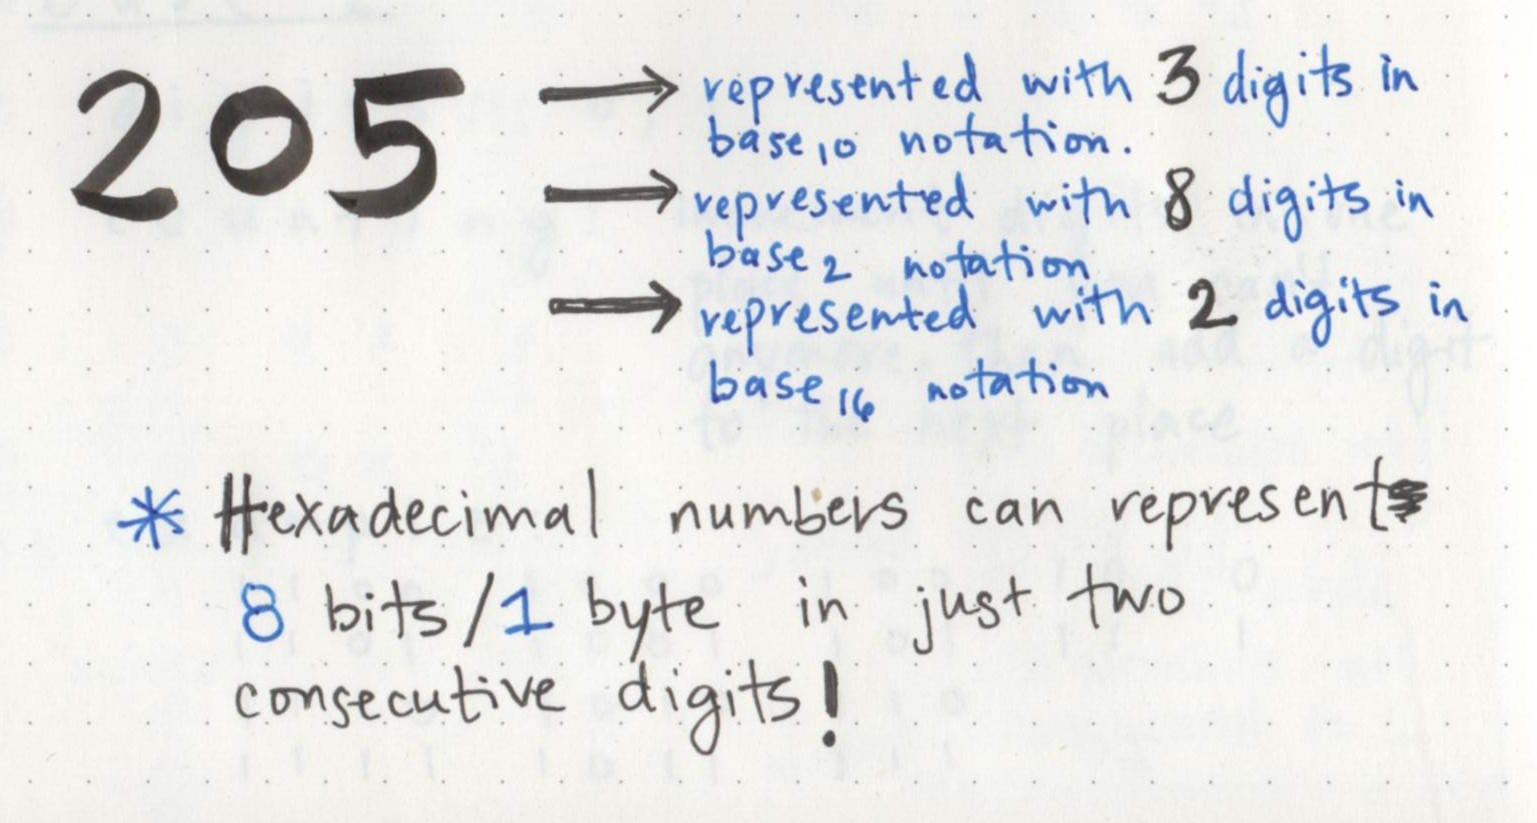 205 → represented with 3 digits in
base₁₀ notation.
→ represented with 8 digits in
base₂ notation
→ represented with 2 digits in
base₁₆ notation
* Hexadecimal numbers can represent
8 bits/1 byte in just two
consecutive digits!